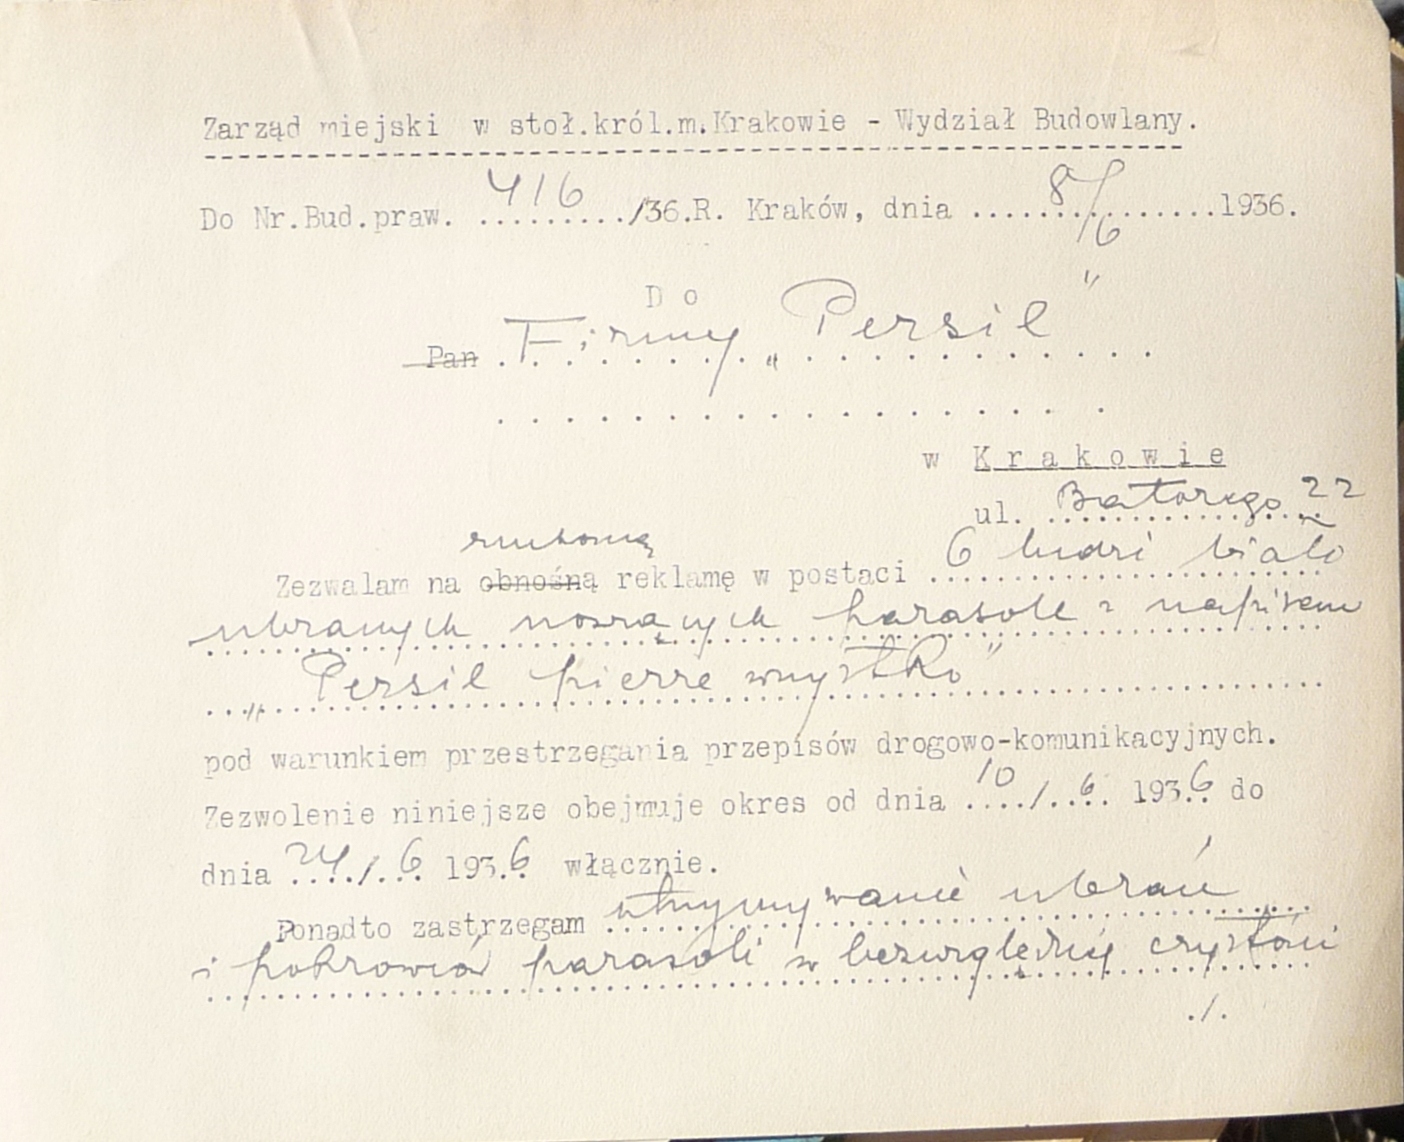 Zarząd miejski w stoł.król.m.Krakowie - Wydział Budowlany.
Do Nr.Bud.praw. 416 /36.R. Kraków, dnia 8/6 1936.
Do
Pan Firmy „Persil"
w Krakowie
ul. Batorego 22
ruchomą
Zezwalam na obnośną reklamę w postaci 6 ludzi biało
ubranych noszących parasole z napisem
„Persil pierze wszystko"
pod warunkiem przestrzegania przepisów drogowo-komunikacyjnych.
Zezwolenie niniejsze obejmuje okres od dnia 10/6 1936 do
dnia 24/6 1936 włącznie.
Ponadto zastrzegam utrzymywanie ubrań
i pokrowców parasoli w bezwzględnej czystości
./.